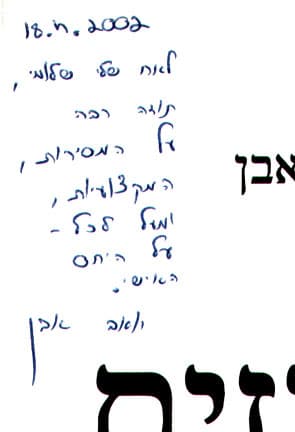 18.4.2002
לאח שלי שלומי,
תודה רבה
על המסירות,
המקצועיות,
ומעל לכל -
על היחס
האישי.
יואב אבן
אבן
זים